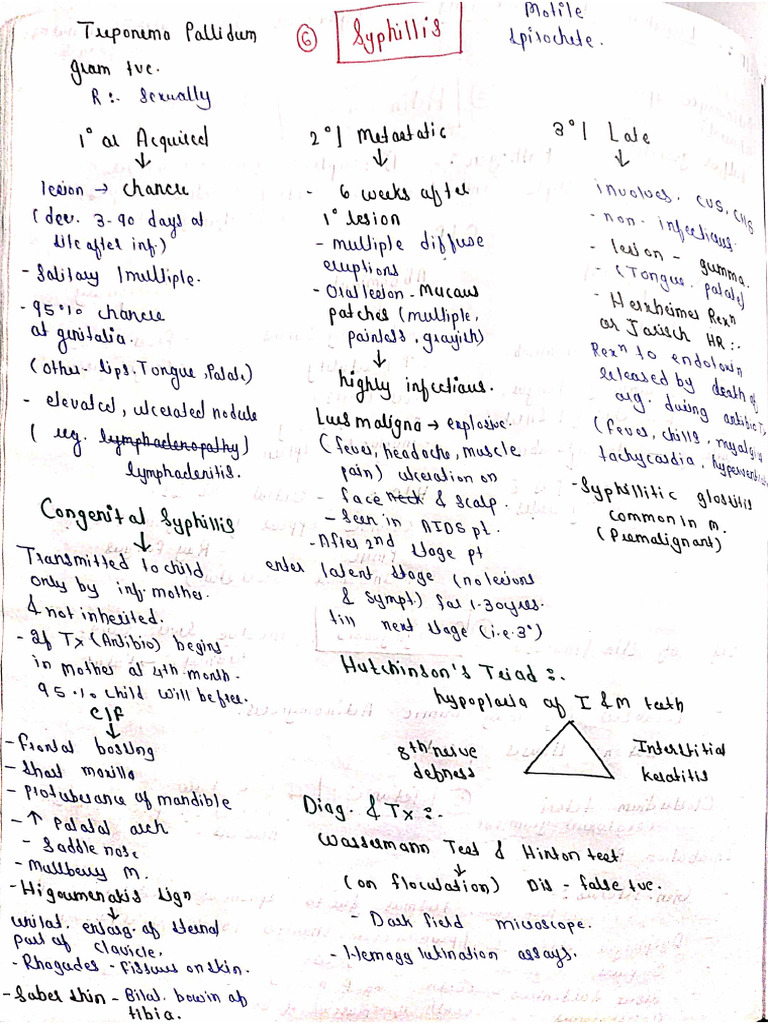 Treponema Pallidum
⑥
Syphillis
Motile
Spirochete.
gram tve.
R:. Sexually
1° or Acquired
↓
lesion → chancre
(dev. 3-90 days at
site after inf.)
- Solitary / multiple.
- 95% chancre
at genitalia.
(other- lips, Tongue, Palate)
- elevated, ulcerated nodule
( reg. lymphadenopathy)
lymphadenitis.
Congenital Syphillis
↓
Transmitted to child
only by inf. mother.
& not inherited.
- If Tx (Antibio) begins
in mother at 4th month.
95% child will be free.
C/F
↓
- Frontal bossing
- Short maxilla
- protuberance of mandible
- ↑ Palatal arch
- Saddle nose
- Mullberry M.
- Higoumenakis sign
↓
unilat. enlarg. of sternal
part of clavicle.
- Rhagades - fissures on skin.
- Saber shin - Bilat. bowin of
tibia.
2° | Metastatic
↓
- 6 weeks after
1° lesion
- multiple diffuse
eruptions
- Oral lesion - Mucous
patches (multiple,
painless, grayish)
↓
highly infectious.
Lues maligna → explosive.
(fever, headache, muscle
pain) ulceration on
- face neck & scalp.
- Seen in AIDS pt.
- After 2nd stage pt
enter latent stage (no lesions
& sympt.) for 1-30 yrs.
till next stage (i.e. 3°)
3° | Late
↓
involves. CVS, CNS
- non-infectious.
- lesion - gumma.
- (Tongue, palate)
- Herxheimer Rexⁿ
or Jarisch HR:.
Rexⁿ to endotoxin
released by death of
org. during antibio Tx
(fever, chills, myalgia
tachycardia, hyperventil
- Syphillitic glossitis
common in m.
(Premalignant)
Hutchinson's Triad :.
hypoplasia of I & M teeth
8th nerve
defness
Interstitial
keratitis
Diag. & Tx :.
Wassermann Test & Hinton test
↓
(on floculation) Dis - false tve.
- Dark field microscope.
- Hemagglutination assays.